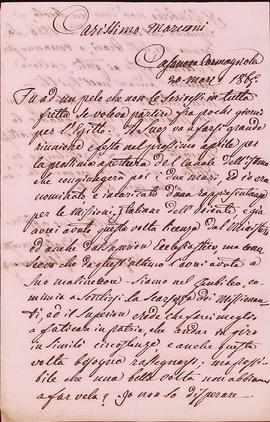 Carissimo Marconi.
Casanova Carmagnola
30 marzo
Fu ad un pelo che non le scrivessi in tutta
fretta se voleva partire fra pochi giorni
per l'Egitto. A Suez va a farsi grande
riunione e feste nel prossimo aprile per
la prossima apertura del Canale dell'Istmo
che congiungerà poi i due mari, ed io era
nominato e incaricato d'una rappresentanza
per le Missioni Italiane dell'Oriente e già
avrei avuto questa volta licenza dal Ministero
ed anche dai Superiori Ecclesiastici, ma
che degli ultimi avuta a
suo malincuore. Siamo nel Giubileo, co-
mincia a sentirsi la scarsezza di Missiona-
ri, ed il Superiore crede che farei meglio
a faticare in patria, che andar in giro
in simile circostanza e anche questa
volta bisogna rassegnarsi. ma possi-
bile che una bella volta non abbiamo
a far vela? Io non so disperare